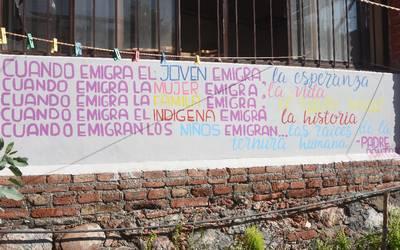 CUANDO EMIGRA EL JOVEN EMIGRA, la esperanza
CUANDO EMIGRA LA MUJER EMIGRA, la vida
CUANDO EMIGRA LA FAMILIA EMIGRA, el tejido social
CUANDO EMIGRA EL INDIGENA EMIGRA la historia
CUANDO EMIGRAN LOS NIÑOS EMIGRAN... las raices de la
ternura humana. -PADRE